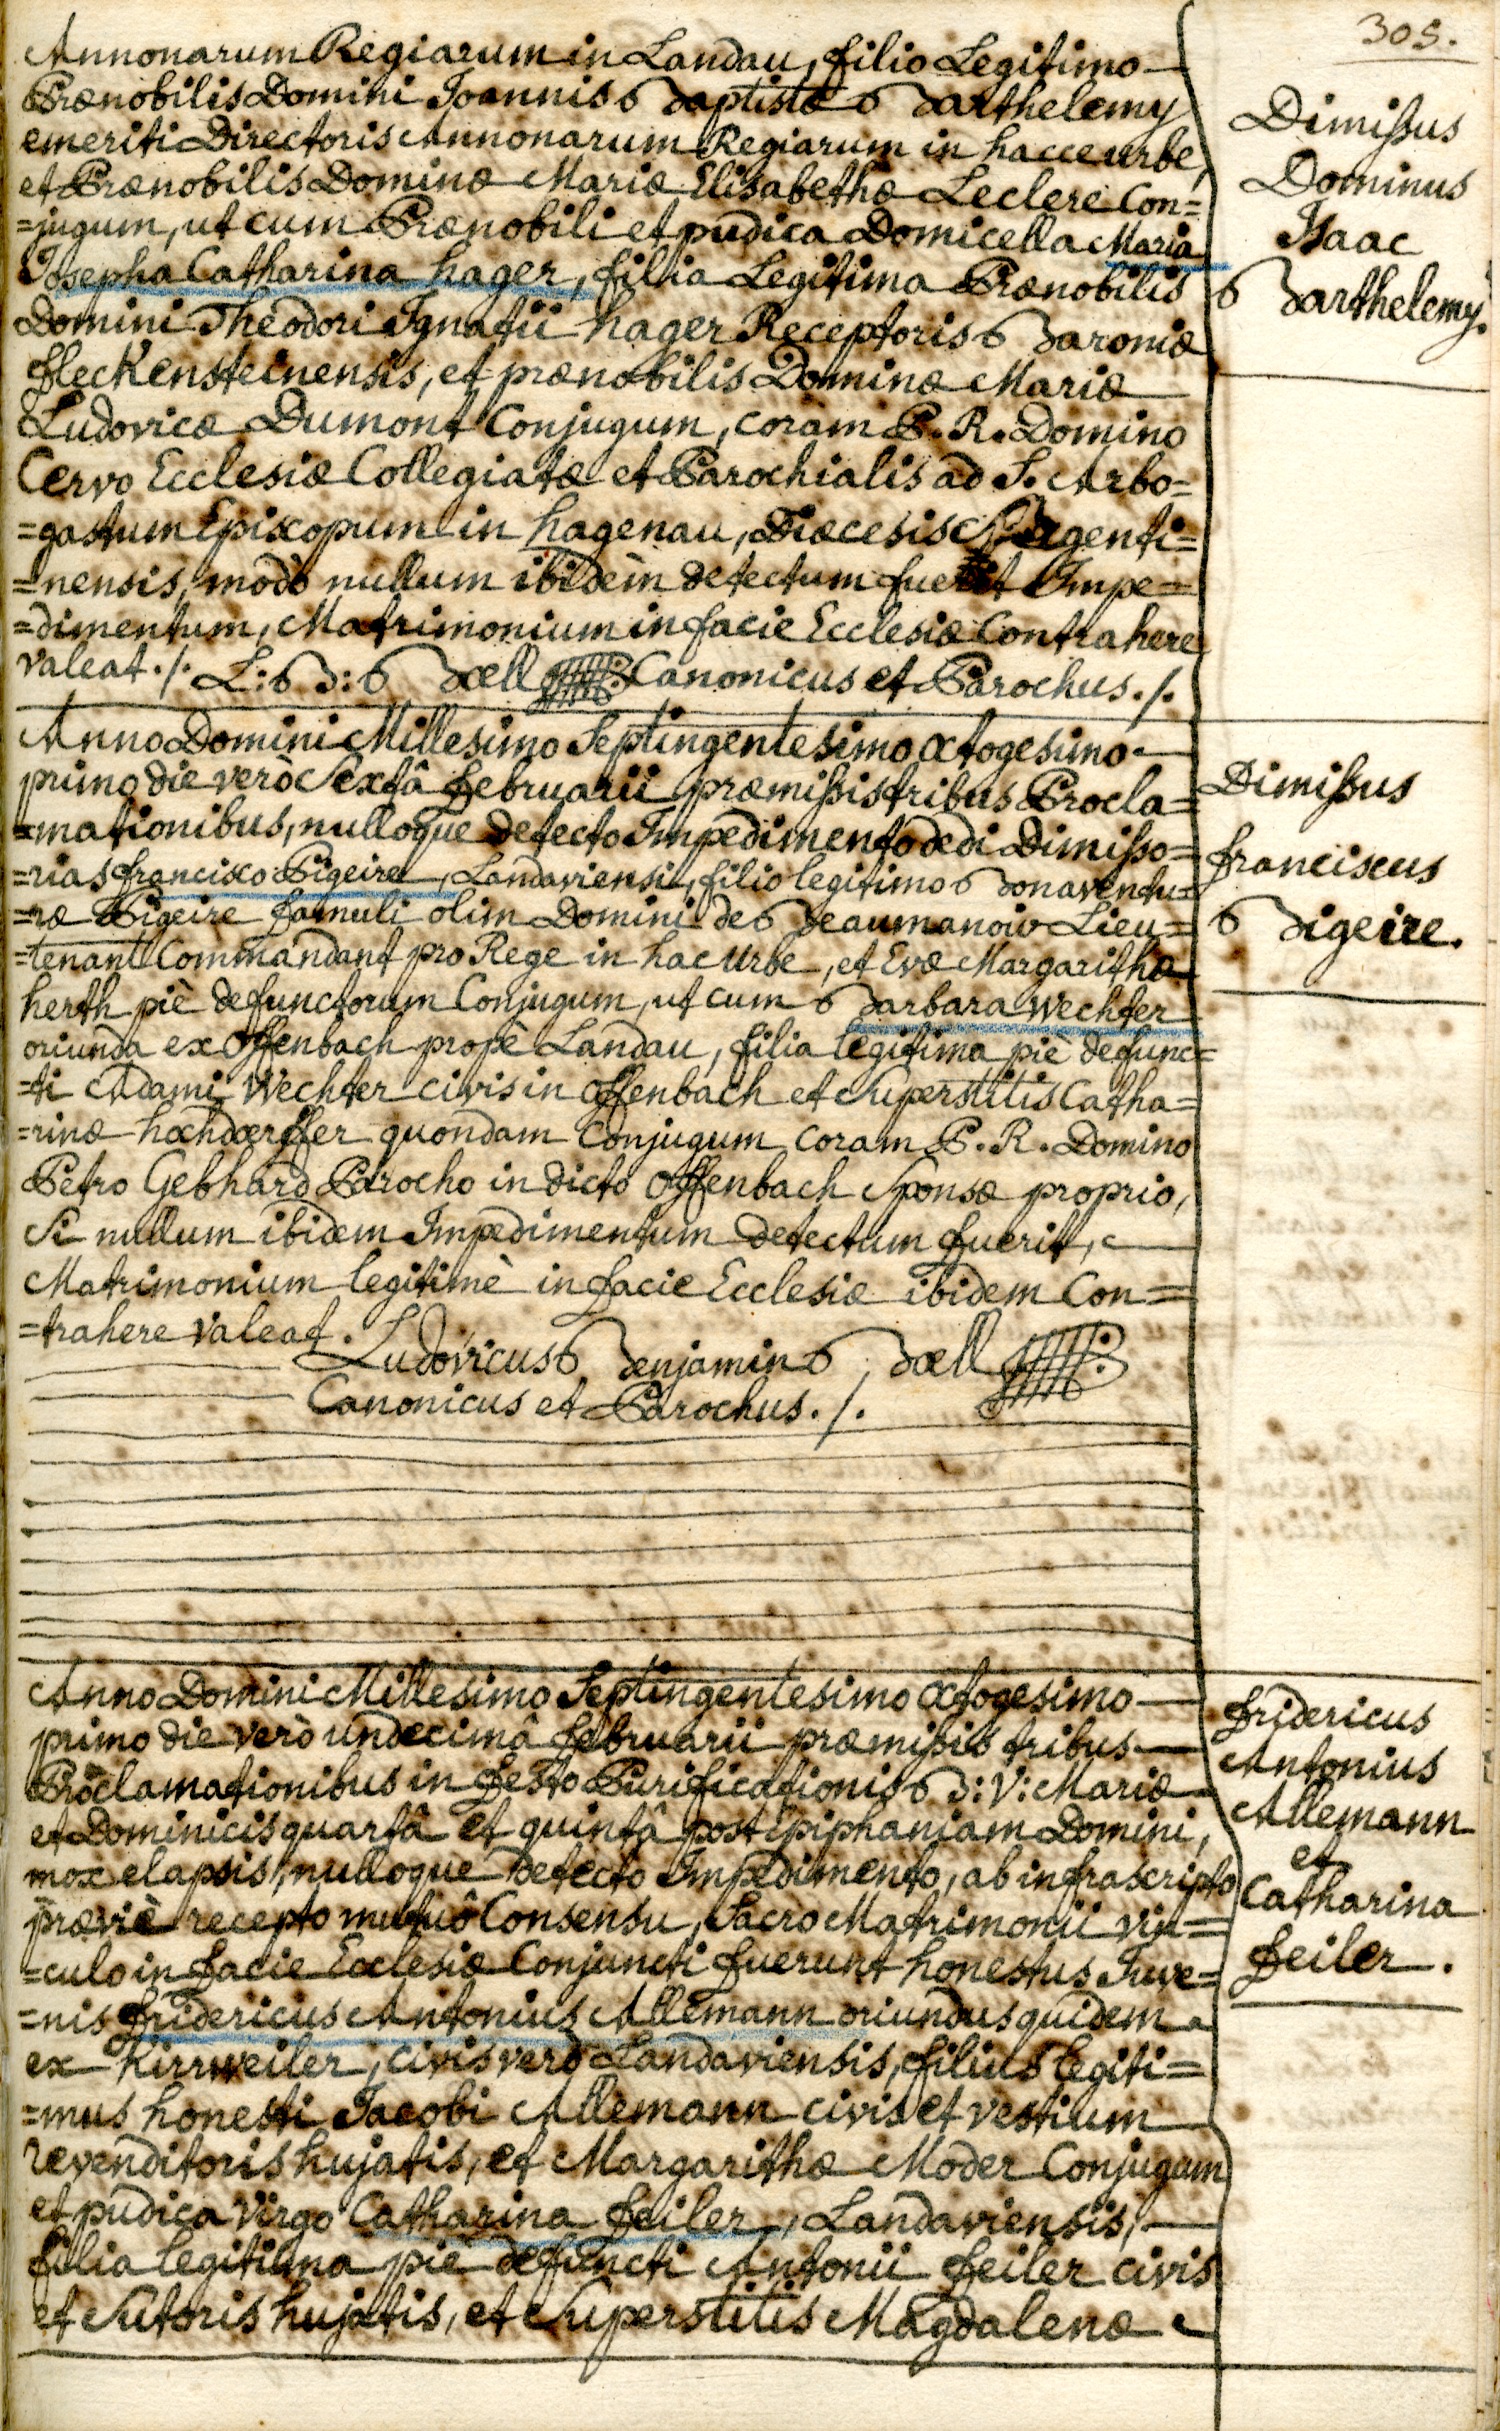 305.
Annonarum Regiarum in Landau, filio Legitimo
Prænobilis Domini Joannis Baptistæ Barthelemy
emeriti Directoris Annonarum Regiarum in hacce urbe,
et Prænobilis Dominæ Mariæ Elisabethæ Leclere Con=
=jugum, ut cum Prænobili et pudica Domicella Maria
Josepha Catharina hager, filia Legitima Prænobilis
Domini Theodori Ignatii hager Receptoris Baroniæ
fleckensteinensis, et prænobilis Dominæ Mariæ
Ludovicæ Dumont Conjugum, coram P. R. Domino
Cervo Ecclesiæ Collegiatæ et Parochialis ad S. Arbo=
=gastum Episcopum in hagenau, Diœcesis Argenti=
=nensis, modò nullum ibidèm detectum fuerit Impe=
=dimentum, Matrimonium in facie Ecclesiæ Contrahere
valeat ./. L: B: Bœll Canonicus et Parochus ./.
Dimissus
Dominus
Isaac
Barthelemy.
Anno Domini Millesimo Septingentesimo Octogesimo
primo die verò Sextâ februarii præmissis tribus Procla=
=mationibus, nulloque detecto Impedimento dedi Dimisso=
=rias francisco Bigeire, Landaviensi, filio legitimo Bonaventu=
=ræ Bigeire famuli olim Domini de Beaumanoir Lieu=
=tenant Commandant pro Rege in hac Urbe, et Evæ Margarithæ
herth piè defunctorum Conjugum, ut cum Barbara Wechter
oriunda ex Offenbach propè Landau, filia legitima piè defunc=
=ti Adami Wechter civis in Offenbach et Superstitis Catha=
=rinæ hochdœrffer quondam Conjugum coram P. R. Domino
Petro Gebhard Parocho in dicto Offenbach Sponsæ proprio,
Si nullum ibidem Impedimentum detectum fuerit,
Matrimonium legitimè in facie Ecclesiæ ibidem Con=
=trahere valeat.
Ludovicus Benjamin Bœll
Canonicus et Parochus ./.
Dimissus
franciscus
Bigeire.
Anno Domini Millesimo Septingentesimo Octogesimo
primo die verò undecimâ februarii præmissis tribus
Proclamationibus in festo Purificationis B: V: Mariæ
et Dominicis quartâ et quintâ post Epiphaniam Domini,
mox elapsis, nulloque detecto Impedimento, ab infrascripto
præviè recepto mutuô Consensu, Sacro Matrimonii vin=
=culo in facie Ecclesiæ Conjuncti fuerunt honestus Juve=
=nis fridericus Antonius Allemann oriundus quidem
ex Kirrweiler, civis verò Landaviensis, filius legiti=
=mus honesti Jacobi Allemann civis et vestium
revenditoris hujatis, et Margarithæ Moder Conjugum
et pudica Virgo Catharina feiler, Landaviensis,
filia legitima piè defuncti Antonii feiler civis
et Sutoris hujatis, et Superstitis Magdalenæ
fridericus
Antonius
Allemann
et
Catharina
feiler.